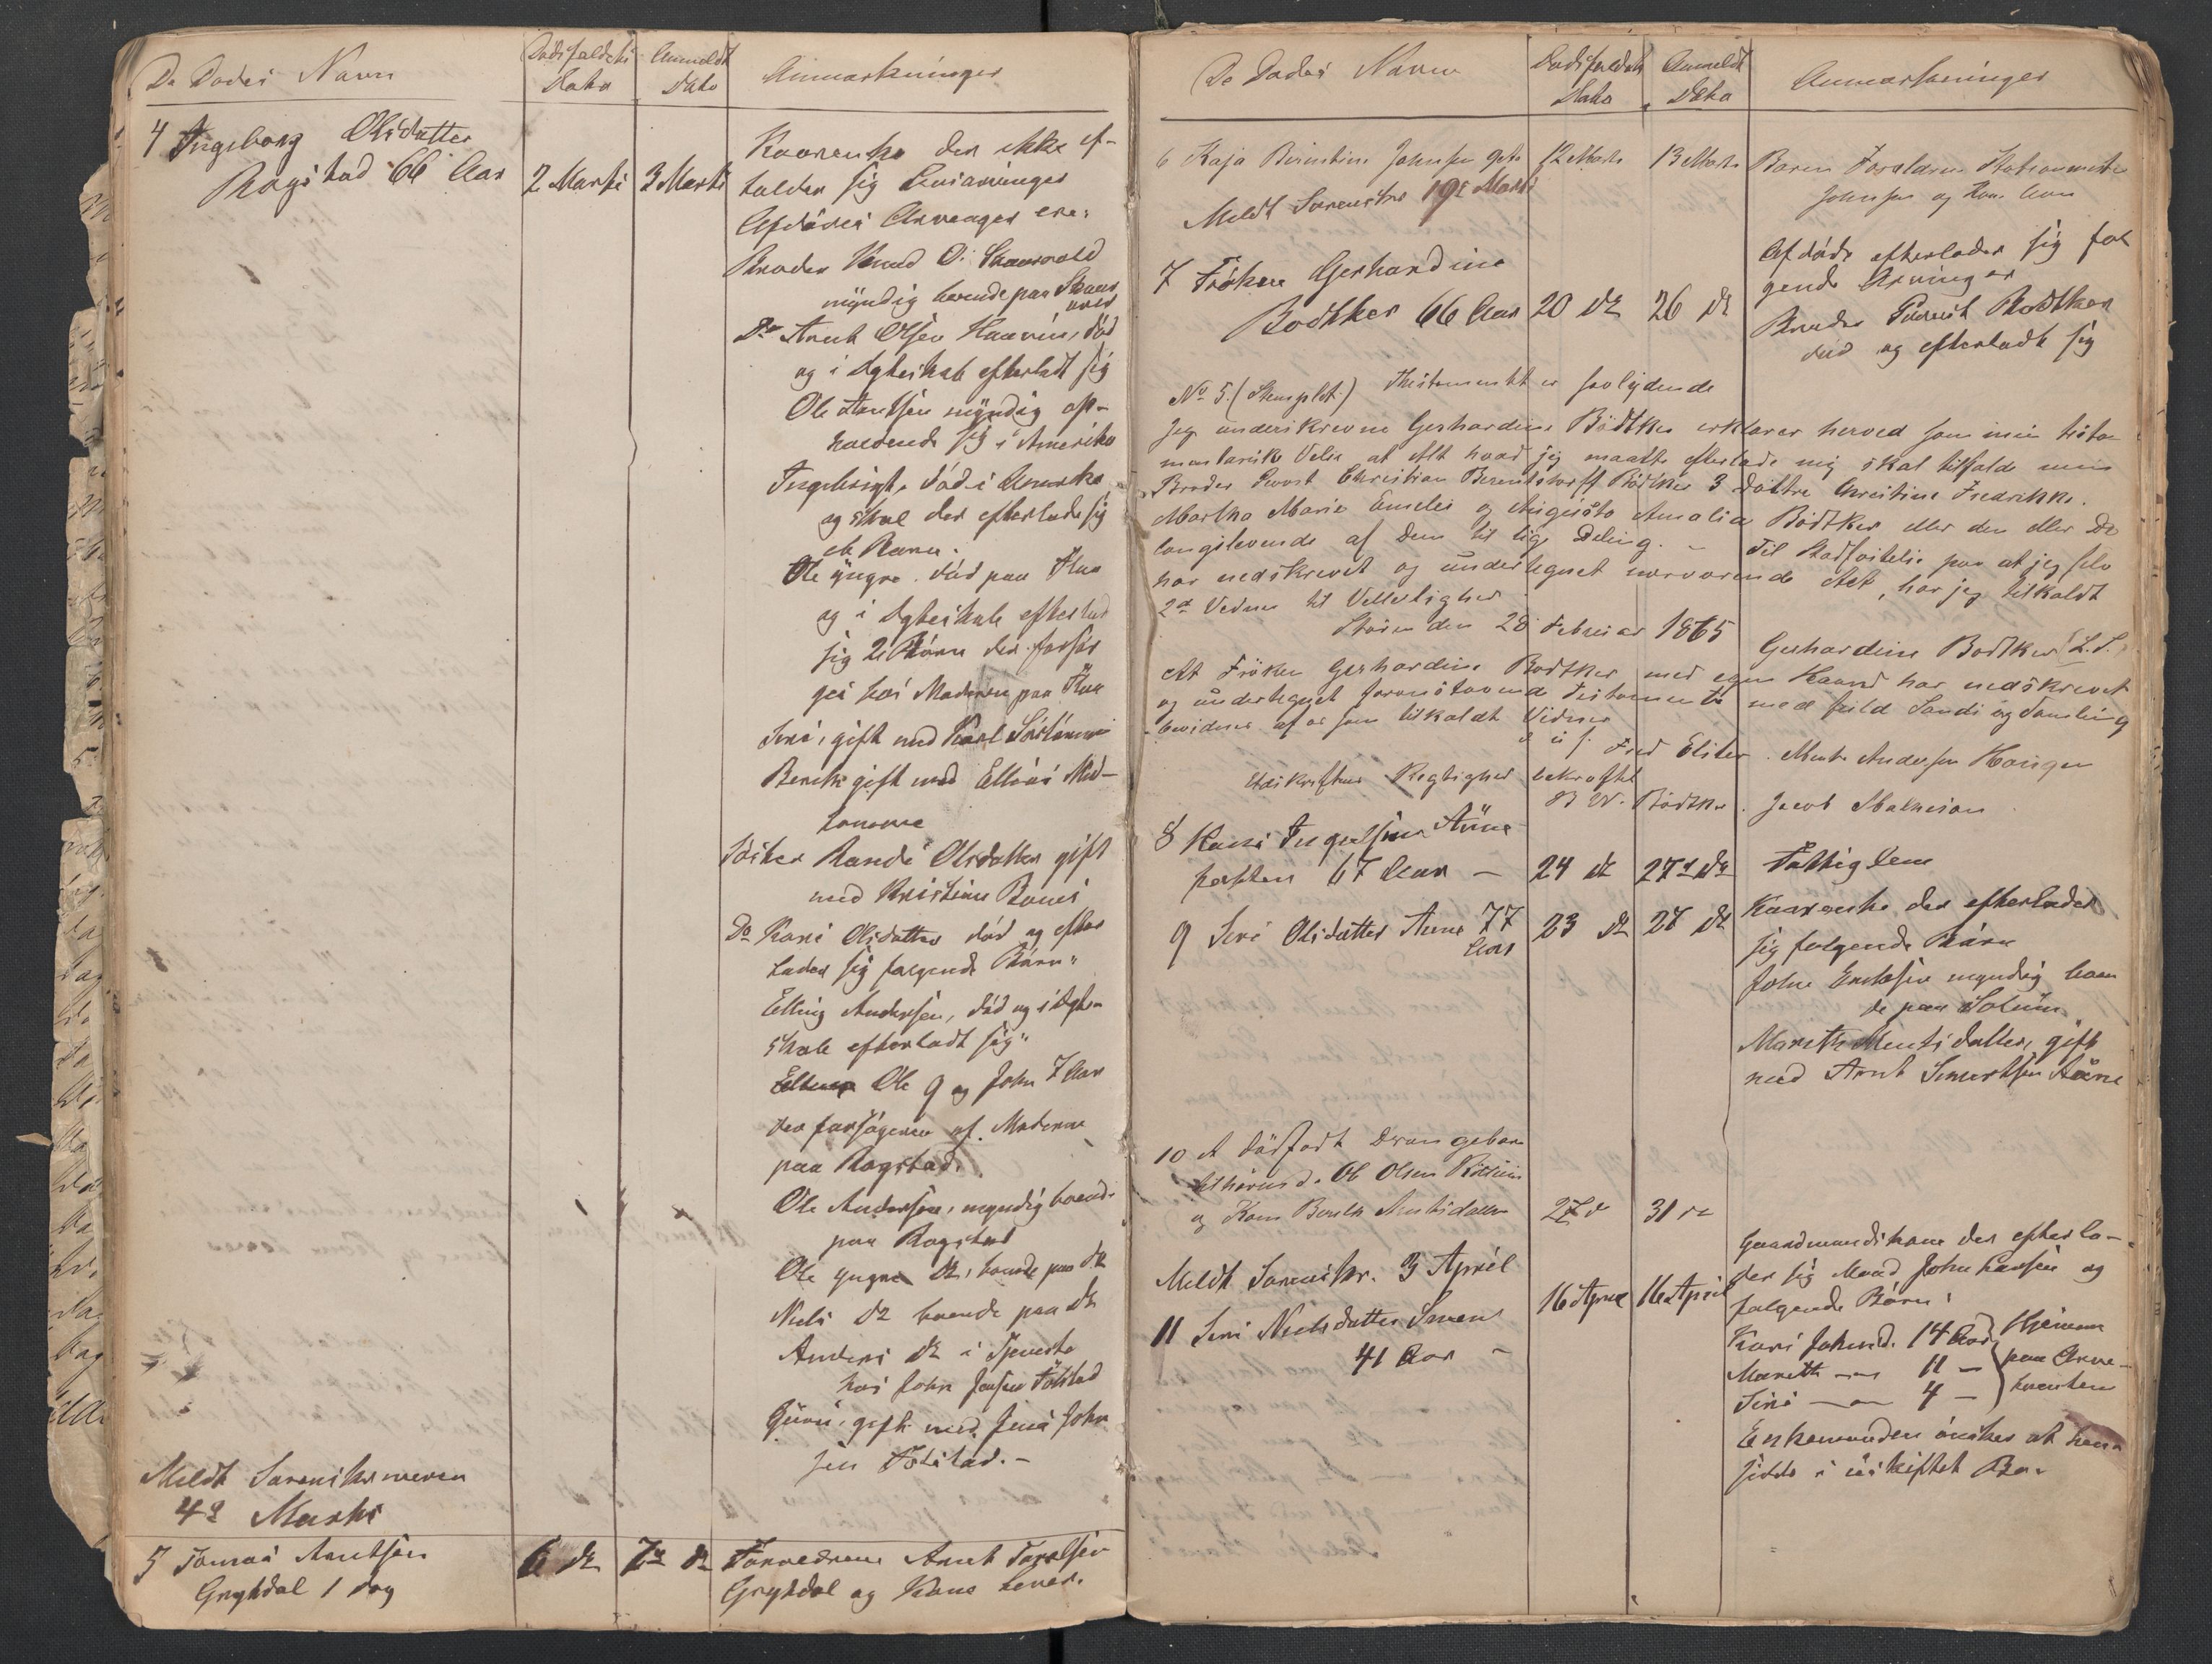 De Dødes Navn
Dødsfaldets
Dato
Anmeldt
Dato
Anmærkninger
4 Ingeborg Olsdatter
Rogstad 66 Aar
2 Marts
3 Marts
Kaarenke der ikke ef-
talder sig Livsarvinger
Afdødes Arvenger ere:
Broder Knud O.
myndig boende paa
Do Arnt Olsen Haarein, død
og i Ægteskab efterladt sig
Ole Arntsen myndig op-
holdende sig i Amerika
Ingebrigt, død i Amerika
og skal der efterlade sig
et Barn.
Ole yngre. død paa
og i Ægteskab efterlad
sig 2 Børn der forsør
ges hos Moderen paa
Siri, gift med Karl
Berith gift med
Søster Randi Olsdatter gift
med Kristian
Do Kari Olsdatter død og efter
lader sig følgende Børn"
Elling Andersen, død og i Ægte-
skab efterladt sig"
Ole 9 og John 7 Aar
der forsørgeres af Moderen
paa Rogstad.
Ole Andersen, myndig boende
paa Rogstad
Ole yngre do, boende paa do
Niels do boende paa do
Anders do i Tjeneste
hos John Jensen Folstad
Guru, gift med Jens John
sen Folstad.-
Meldt Sorenskriveren
4de Marts
5 Tomas Arntsen
Grytdal 1 dag
6 do
7de do
Forældrene Arnt Toralsen
Grytdal og Kone lever.
De Dødes Navn
Dødsfaldets
Dato
Anmeldt
Dato
Anmærkninger
6 Kaja Birgitine Johnsen
12 Marts
13 Marts
Barn Forældrene Stationsmester
Johnsen og Kone
Meldt Sorenskr 19de Marts
7 Frøken Gerhardine
Bødtker 66 Aar
20 do
26 do
Afdøde efterlader sig føl
gende Arvinger
Broder Provst Bødtker
død og efterladt sig
No 5. (Stemplet) Thestamentet er saalydende
Jeg underskrevne Gerhardine Bødtker erklærer herved som min testa
mentariske Villie at Alt hvad jeg maatte efterlade mig skal tilfalde min
Broder Provst Christian Berentstorff Bødtker 3 Døttre Christine Fredrikke.
Martha Marie Emilie og Augusta Amalia Bødtker eller den eller De
længstlevende af Dem til lige Deling. - Til Stadfæstelse paa at jeg selv
har nedskrevet og undertegnet nærværende Act, har jeg tilkaldt
2de Vidner til Vitterlighed.
Støren den 28 Februar 1865
Gerhardine Bødtker (L.S.)
At Frøken Gerhardine Bødtker med egen Haand har nedskrevet
og undertegnet foranstaaende Testamente med fuld Sands og Samling
bevidnes af os som tilkaldt Vidner
d. u. s. Fred Elster. Mente Andersen Haugen
Udskriftens Rigtighed bekræftet
B W. Bødtker. Jacob Mathison
8 Kari Ingulfsen Aune
pladsen 67 Aar -
24 do
27de do
Fattiglem
9 Siri Olsdatter Aune 77
Aar
23 do
28 do
Kaarenke der efterlader
sig følgende Børn
John Estensen myndig boen
de paa Solum
Mareth Mentsdatter, gift
med Arnt Sivertsen Aune
10 et dødfødt Drengebarn
tilhørende Ole Olsen
og Kone Berith Arntsdatter
27 do
31 do
Meldt Sorenskr. 3 April
11 Siri Nielsdatter Snøen
41 Aar -
16 April
16 April
Gaardmandskone der efterla-
der sig Mand John Larsen og
følgende Børn:
Kari Johnsd. 14 Aar
Mareth -"- 11 -
Siri -"- 4 -
Hjemme
paa Arve-
tomten
Enkemanden ønsker at hen-
sidde i uskiftet Bo.